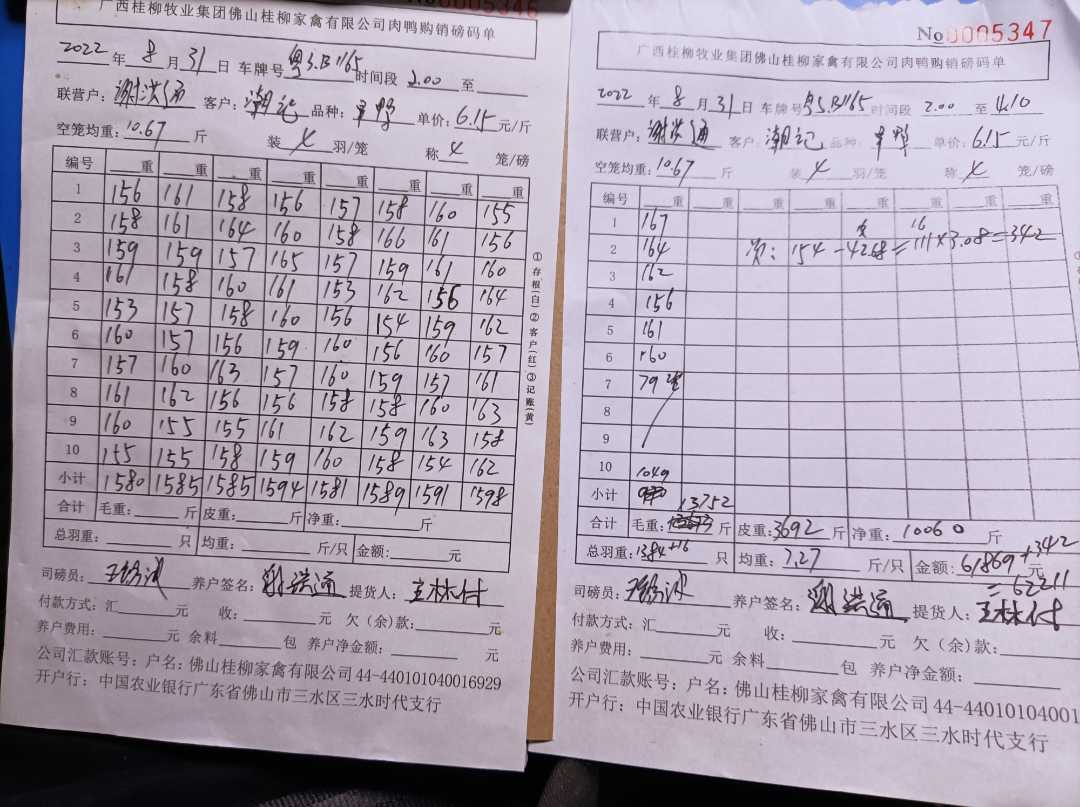 No0005346
广西桂柳牧业集团佛山桂柳家禽有限公司肉鸭购销磅码单
2022年8月31日 车牌号粤S.B1165时间段2.00至
联营户:谢洪通 客户:潮记 品种: 单价:6.15元/斤
空笼均重:10.67斤 装4羽/笼 称4笼/磅
编号 重 重 重 重 重 重 重 重
1 156 161 158 156 157 158 160 155
2 158 161 164 160 158 166 161 156
3 159 159 157 165 157 159 161 160
4 161 158 160 161 153 162 156 164
5 153 157 158 160 156 154 159 162
6 160 157 156 159 160 156 160 157
7 157 160 163 157 160 159 157 161
8 161 162 156 156 158 158 160 163
9 160 155 155 161 162 159 163 158
10 155 155 158 159 160 158 154 162
小计 1580 1585 1585 1594 1581 1589 1591 1598
合计 毛重:斤 皮重:斤 净重:斤
总羽重:只 均重:斤/只 金额:元
司磅员: 养户签名:谢洪通 提货人:王林付
付款方式:汇元 收:元 欠(余)款:元
养户费用:元 余料包 养户净金额:元
公司汇款账号:户名:佛山桂柳家禽有限公司44-440101040016929
开户行:中国农业银行广东省佛山市三水区三水时代支行
①存根(白)②客户(红)③记账(黄)
No0005347
广西桂柳牧业集团佛山桂柳家禽有限公司肉鸭购销磅码单
2022年8月31日 车牌号粤S.B1165时间段2.00至4.10
联营户:谢洪通 客户:潮记 品种: 单价:6.15元/斤
空笼均重:10.67斤 装4羽/笼 称4笼/磅
编号 重 重 重 重 重 重 重 重
1 167
2 164 次:154-42.68=111×3.08=342
16
3 162
4 156
5 161
6 160
7 79
8
9
10
小计 1049
合计 毛重:13752斤 皮重:3692斤 净重:10060斤
总羽重:1384+16只 均重:7.27斤/只 金额:61869+342元
=62211
司磅员: 养户签名:谢洪通 提货人:王林付
付款方式:汇元 收:元 欠(余)款:
养户费用:元 余料包 养户净金额:
公司汇款账号:户名:佛山桂柳家禽有限公司44-44010104001
开户行:中国农业银行广东省佛山市三水区三水时代支行